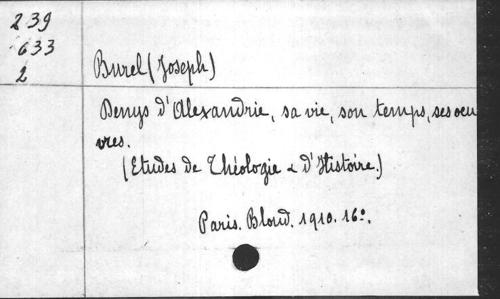 239
633
2
Burel (Joseph)
Denys d'Alexandrie, sa vie, son temps, ses oeu
vres.
(Etudes de Théologie & d'Histoire.)
Paris. Bloud. 1910. 16º.